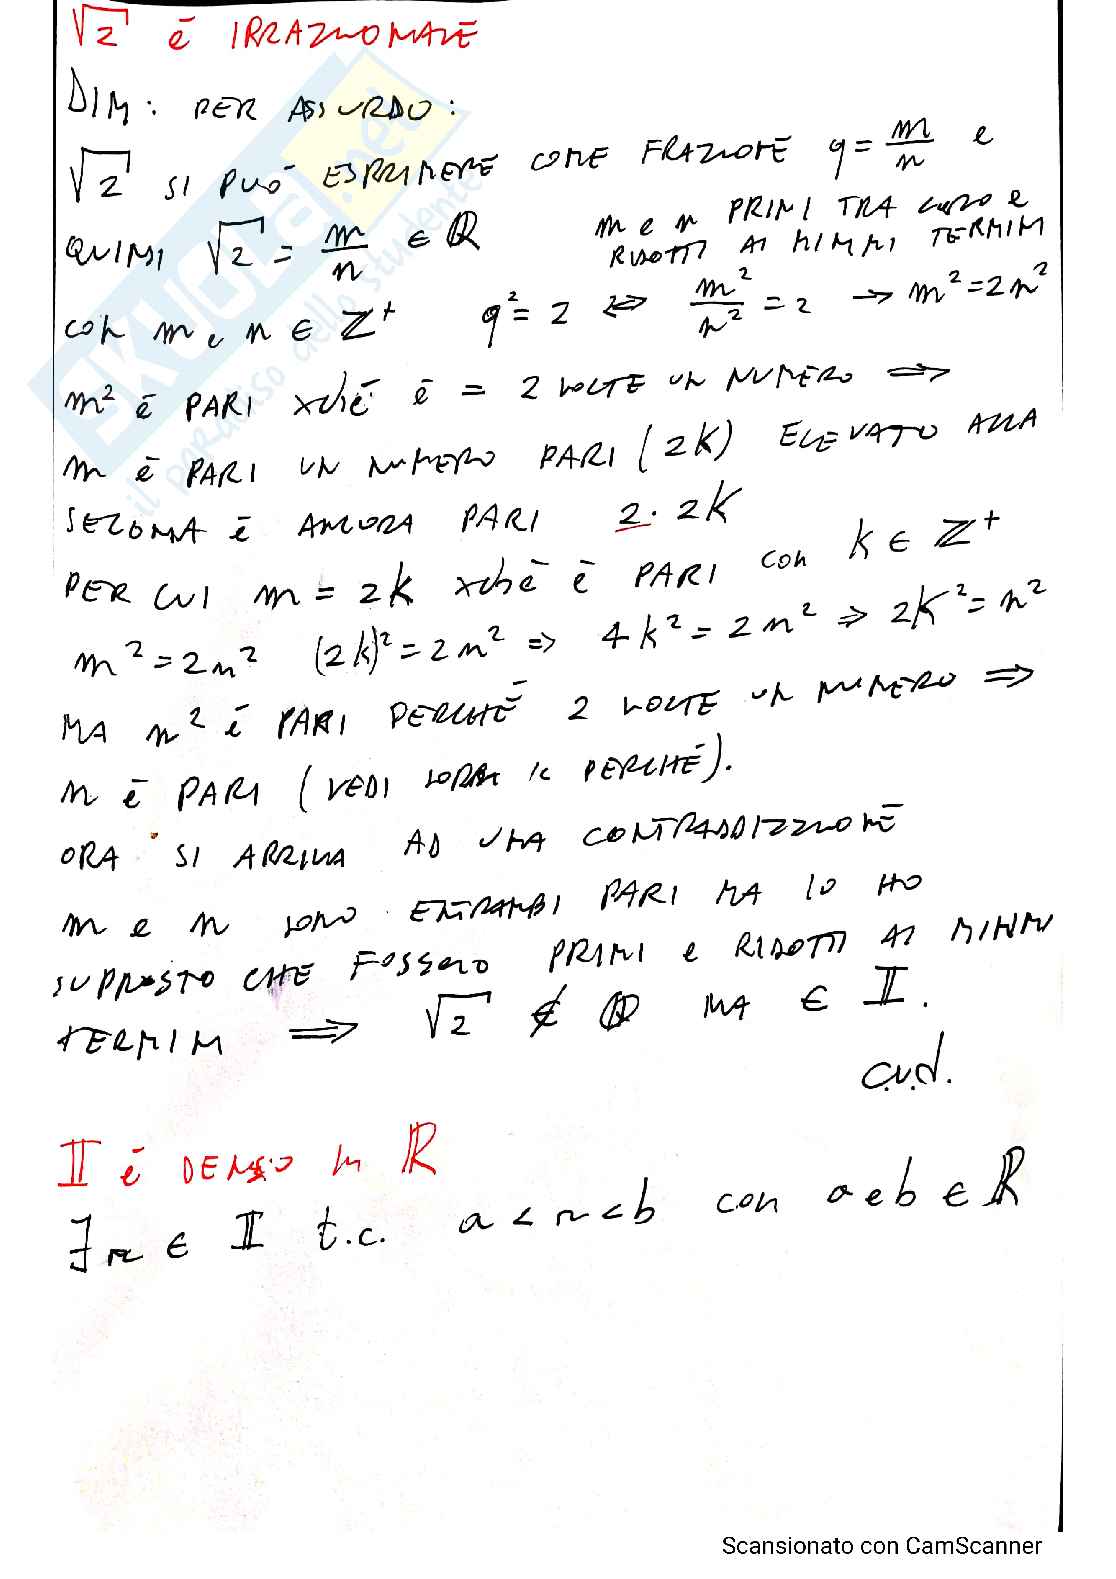 √2 è IRRAZIONALE
DIM: PER ASSURDO:
√2 SI PUÒ ESPRIMERE COME FRAZIONE q = m/n e
QUINDI √2 = m/n ∈ ℚ m e n PRIMI TRA LORO e
RIDOTTI AI MINIMI TERMINI
con m e n ∈ ℤ⁺ q² = 2 ⇔ m²/n² = 2 → m² = 2n²
m² è PARI xchè è = 2 VOLTE UN NUMERO ⇒
m è PARI UN NUMERO PARI (2K) ELEVATO ALLA
SECONDA è ANCORA PARI 2·2K
PER CUI m = 2k xchè è PARI con k ∈ ℤ⁺
m² = 2n² (2k)² = 2n² ⇒ 4k² = 2n² ⇒ 2K² = n²
MA n² è PARI PERCHÉ 2 VOLTE UN NUMERO ⇒
n è PARI (VEDI SOPRA IL PERCHÉ).
ORA SI ARRIVA AD UNA CONTRADDIZZIONE
m e n SONO ENTRAMBI PARI MA IO HO
SUPPOSTO CHE FOSSERO PRIMI e RIDOTTI AI MINIMI
TERMINI ⇒ √2 ∉ ℚ MA ∈ 𝕀.
c.v.d.
𝕀 è DENSO in ℝ
∃ r ∈ 𝕀 t.c. a < r < b con a e b ∈ ℝ
SKUOLA.net
il paradiso dello studente
Scansionato con CamScanner